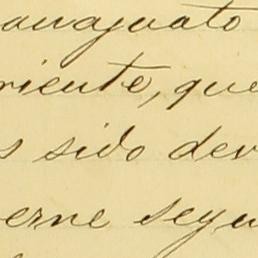 anajuato
riente, que
s sido dev
erne segu